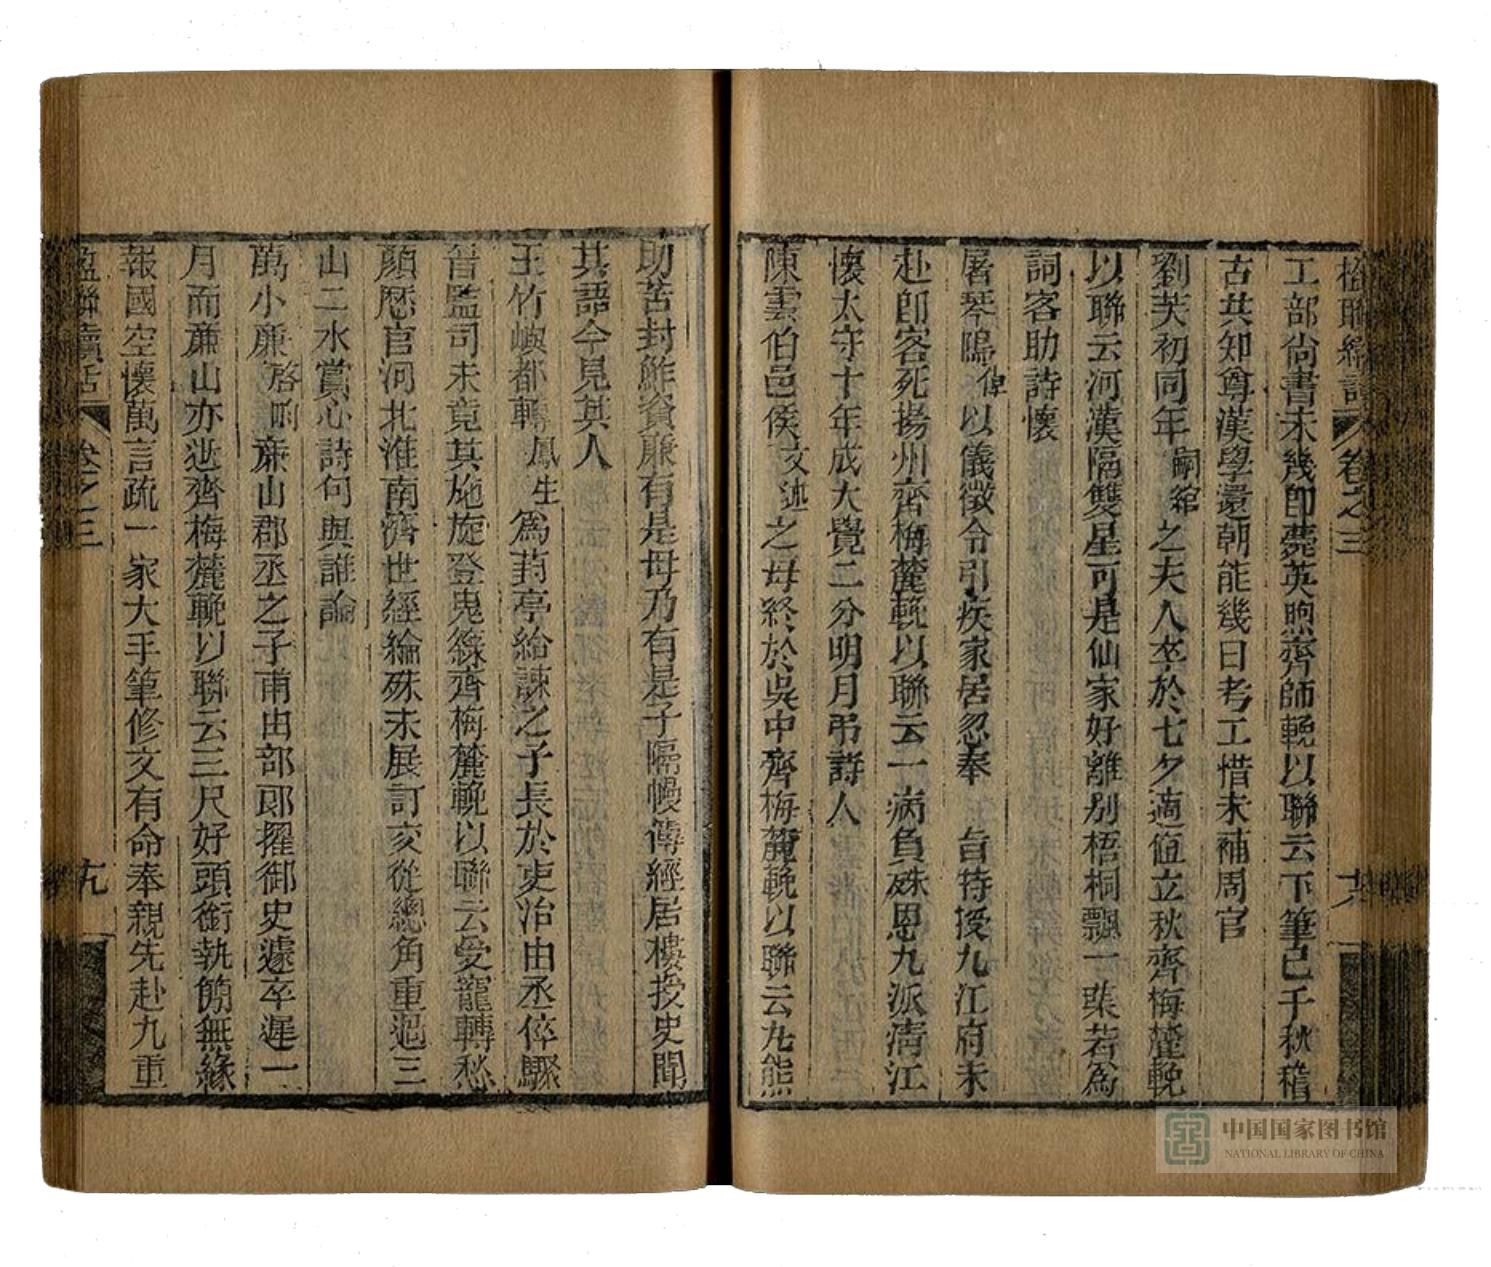 楹聯續話 卷之三 十八
工部尚書未幾即薨英煦齋師輓以聯云下筆已千秋稽
古共知尊漢學還朝能幾日考工惜未補周官
劉芙初同年嗣綰之夫人卒於七夕適值立秋齊梅麓輓
以聯云河漢隔雙星可是仙家好離別梧桐飄一葉若為
詞客助詩懷
屠琴隖倬以儀徵令引疾家居忽奉 旨特授九江府未
赴即客死揚州齊梅麓輓以聯云一病負殊恩九派清江
懷太守十年成大覺二分明月弔詩人
陳雲伯邑侯文述之母終於吳中齊梅麓輓以聯云九熊
助苦封鮓資廉有是母乃有是子隔幔傳經居樓授史聞
其語今見其人
王竹嶼都轉鳳生為葑亭給諫之子長於吏治由丞倅驟
晉監司未竟其施旋登鬼籙齊梅麓輓以聯云受寵轉愁
顏歷官河北淮南濟世經綸殊未展訂交從總角重過三
山二水賞心詩句與誰論
萬小廉啓畇廉山郡丞之子甫由部郎擢御史遽卒遲一
月而廉山亦逝齊梅麓輓以聯云三尺好頭銜執簡無緣
報國空懷萬言疏一家大手筆修文有命奉親先赴九重
楹聯續話 卷之三 十九
中国国家图书馆
NATIONAL LIBRARY OF CHINA